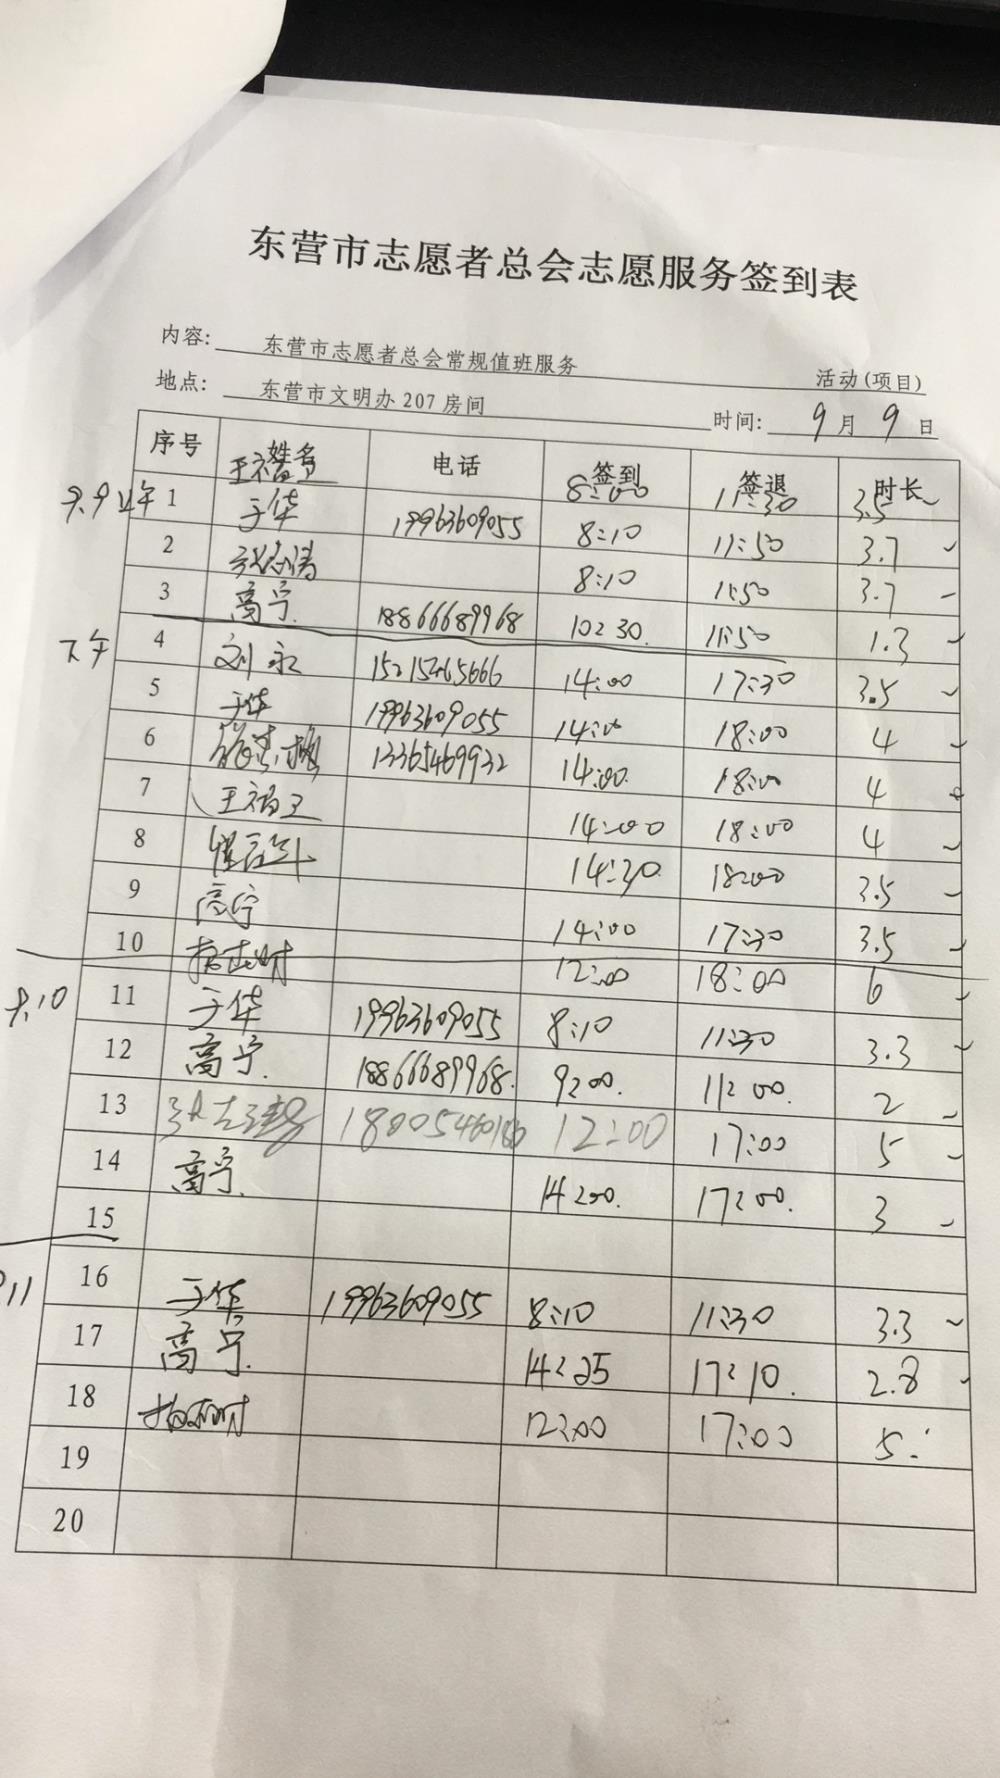 东营市志愿者总会志愿服务签到表
内容: 东营市志愿者总会常规值班服务 活动(项目)
地点: 东营市文明办207房间 时间: 9月9日
序号 姓名 电话 签到 签退 时长
8:00 11:30 3.5
9.9上午 1 于华 19963609055 8:10 11:50 3.7
2 8:10 11:50 3.7
3 高宁 18866689968 10:30 11:50 1.3
下午 4 刘永 15215465666 14:00 17:30 3.5
5 于华 19963609055 14:00 18:00 4
6 13365469932 14:00 18:00 4
7 14:00 18:00 4
8 14:30 18:00 3.5
9 高宁 14:00 17:30 3.5
10 12:00 18:00 6
9.10 11 于华 19963609055 8:10 11:30 3.3
12 高宁 18866689968 9:00 11:00 2
13 12:00 17:00 5
14 高宁 14:00 17:00 3
15
11 16 于华 19963609055 8:10 11:30 3.3
17 高宁 14:25 17:10 2.8
18 12:00 17:00 5
19
20